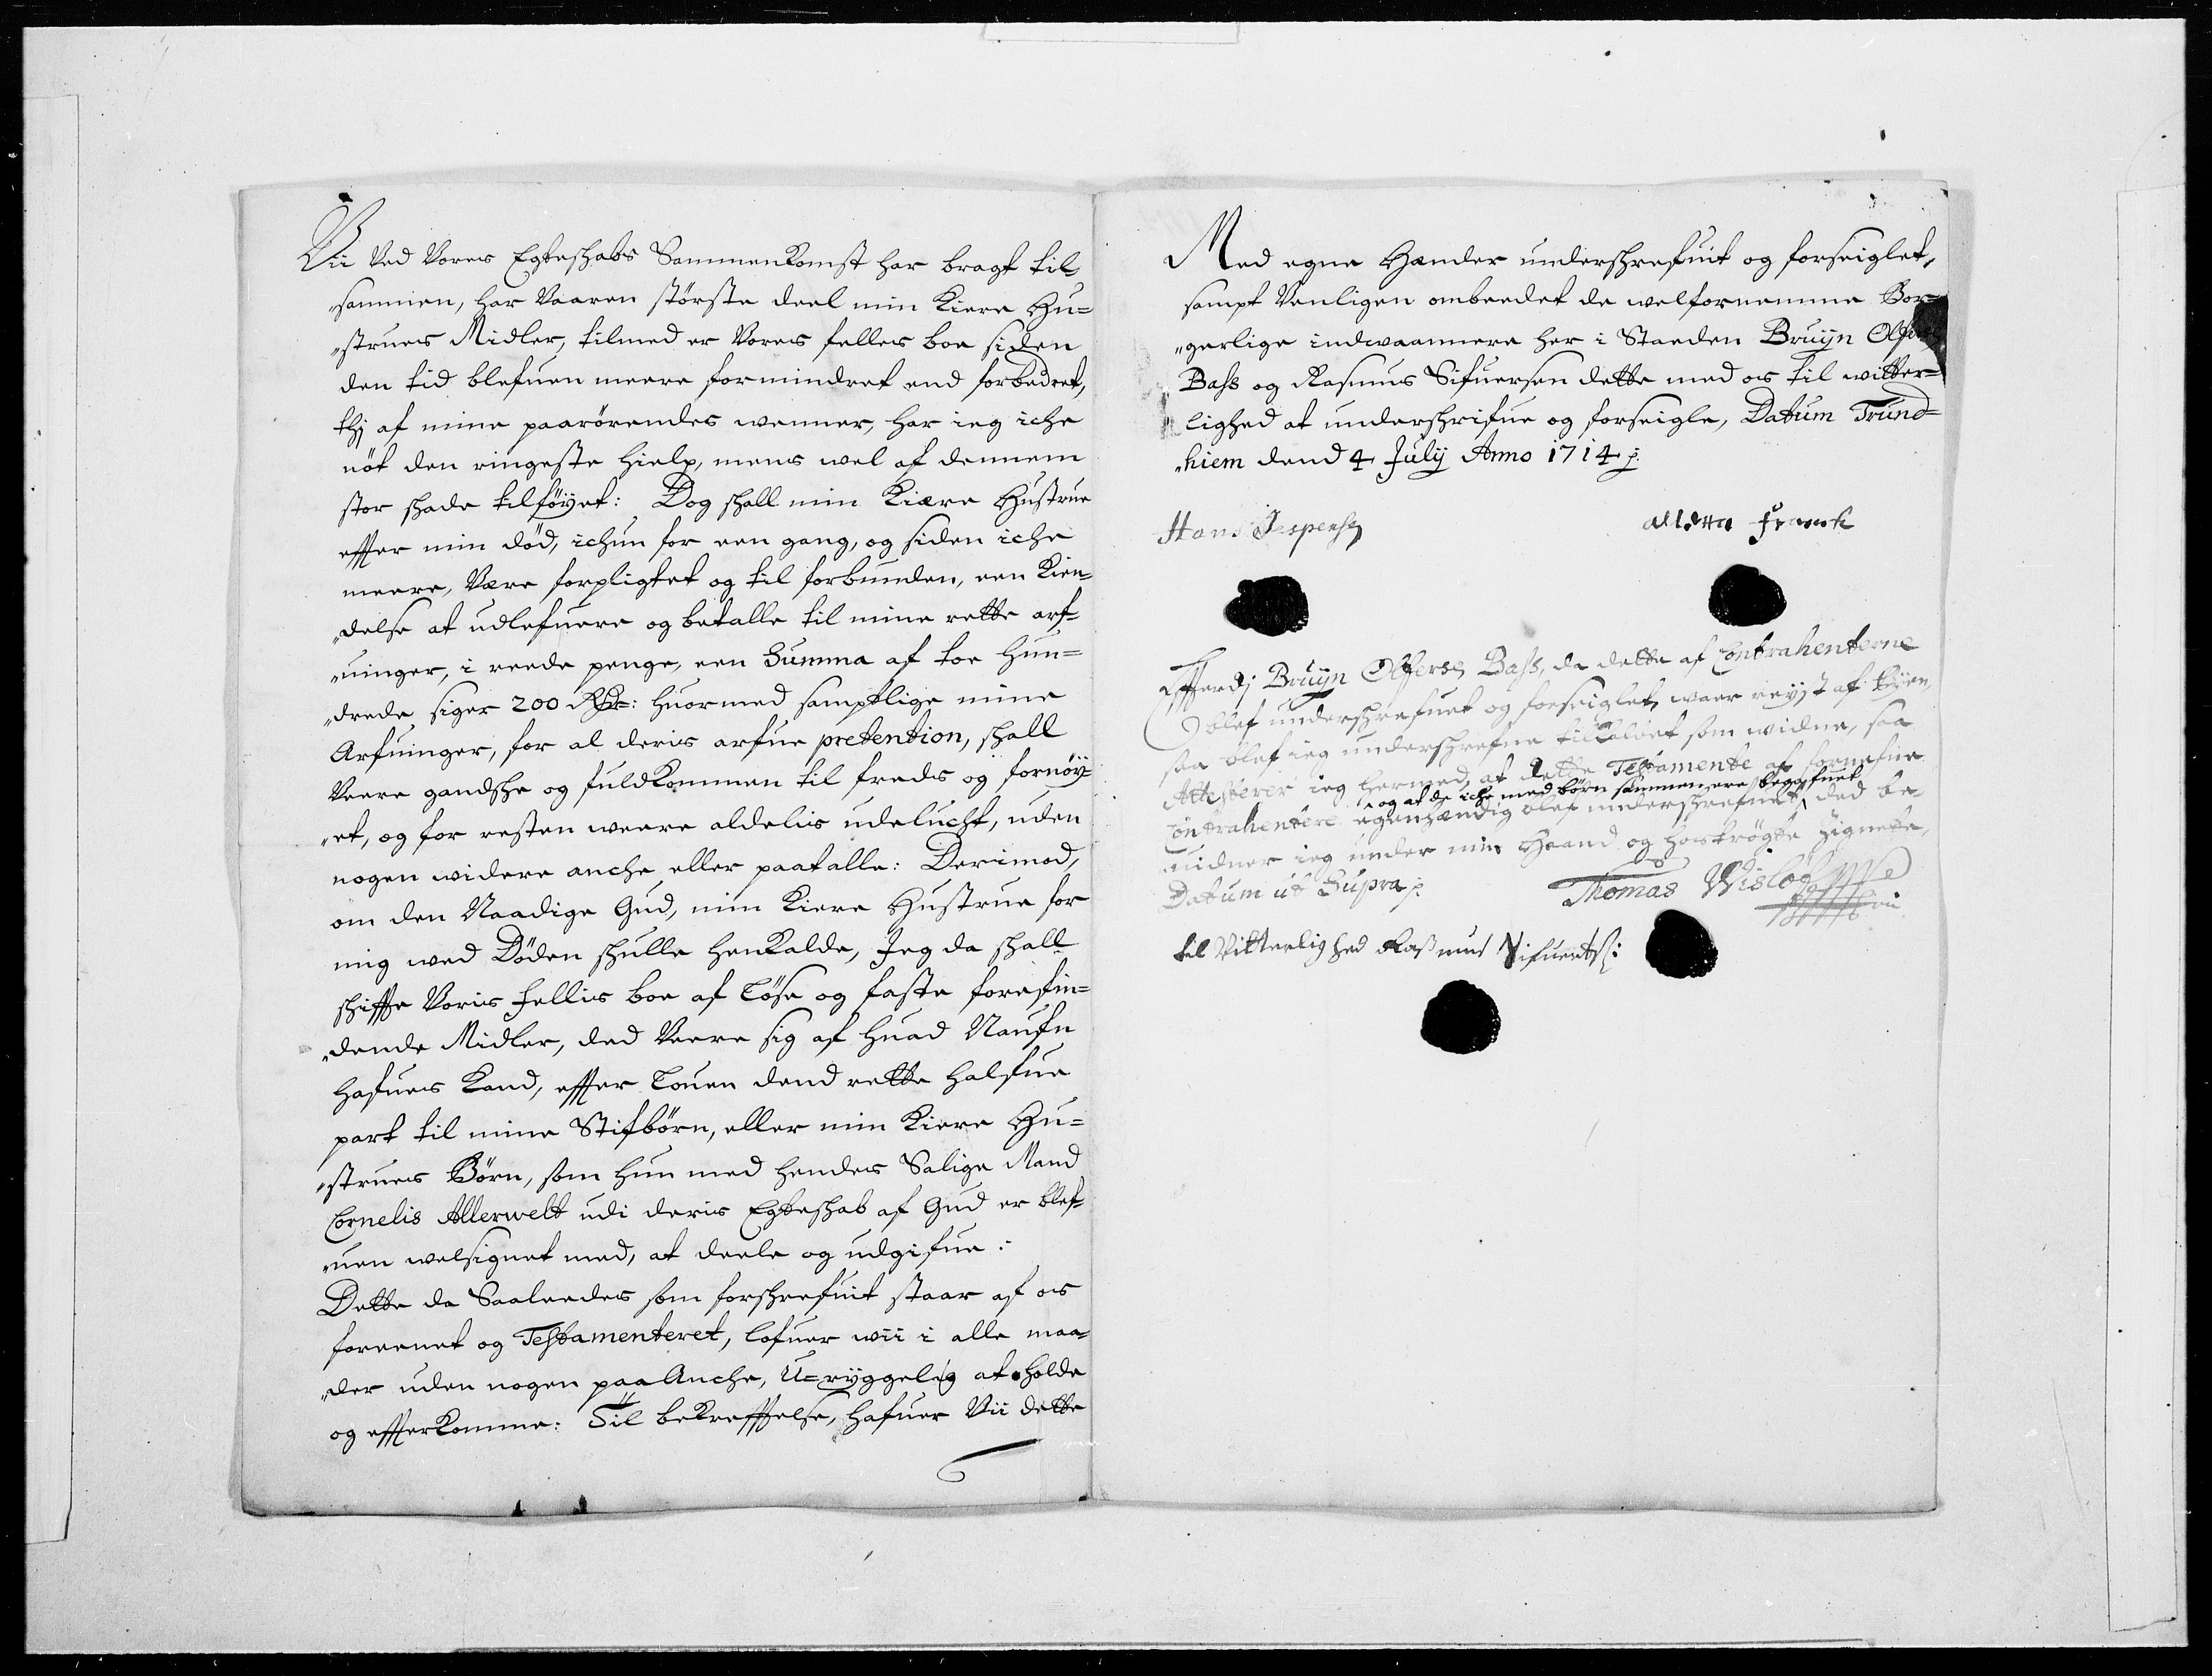 Vii Ved Vores Egteschabs Sammenkomst har bragt til
"sammen, har Vaaren störste deel min Kiere Hu=
"strues Midler, tilmed er Vores felles boe siden
den tid blefuen meere formindret end forbedret,
thj af mine paarörendes wenner, har ieg iche
nöt den ringeste hielp, mens wel af dennem
stor schade tilföyet: Dog schall min Kiære Hustrue
effter min död, ichun for een gang, og siden iche
meere, Være forpligtet og til forbunden, een Kien=
"delse at udlefuere og betalle til mine rette arf=
"uinger, i reede penge, een Summa af toe hun=
"drede siger 200 Rdr: huormed samptlige mine
Arfuinger, for al deris arfue pretention, schall
Veere gandsche og fuldkommen til freds og fornöÿ=
"et, og for resten weere aldelis udelucht, uden
nogen widere anche eller paatalle: Derimod,
om den Naadige Gud, min Kiere Hustrue for
mig wed Döden schulle henkalde, Jeg da schall
schiffte Voris fellis boe af löse og faste forefin=
"dende Midler, ded Veere sig af huad Naufn
hafues Kand, effter Louen dend rette halfue
part til mine Stifbörn, eller min Kiere Hu=
"strues Börn, som hun med hendes Salige Mand
Cornelis Allerwelt udi deris Egteschab af Gud er blef=
"uen welsignet med, at deele og udgifue:
Dette da Saaleedes som forschrefuit staar af os
foreenet og Testamenteret, lofuer wii i alle maa=
"der uden nogen paa Anche, U=ryggelig at holde
og effterkomme: Til bekrefftelse, hafuer Vii dette
Med egne Hænder underschrefuit og forseiglet,
sampt Venligen ombeedet de welfornemme Bor=
"gerlige indwaannere her i Staeden Bruÿn Olfers
Bass og Rasmus Sifuersen dette med os til witter=
lighed at underschrifue og forseigle, Datum Trund=
"hiem dend 4 Julij Anno 1714 p
Hans Jespersen
alletta Franck
Efterdj Bruÿn Olfersen Bass, da dette af Contrahenterne
blef underschrefuet og forseiglet, waar reÿst af bÿen,
saa blef ieg underschrefne tilkaldet som widne, saa
Attesterer ieg hermed, at dette Testamente af fornefne
og at de iche med börn sammen ere begafuet
Contrahentere egenhændig blef underschrefuet, ded be=
uidner ieg under min Haand og hoströgte Zignete,
Datum ut Supra p
Thomas Wislöf
til Vitterlighed Rasmus Sifuerts: